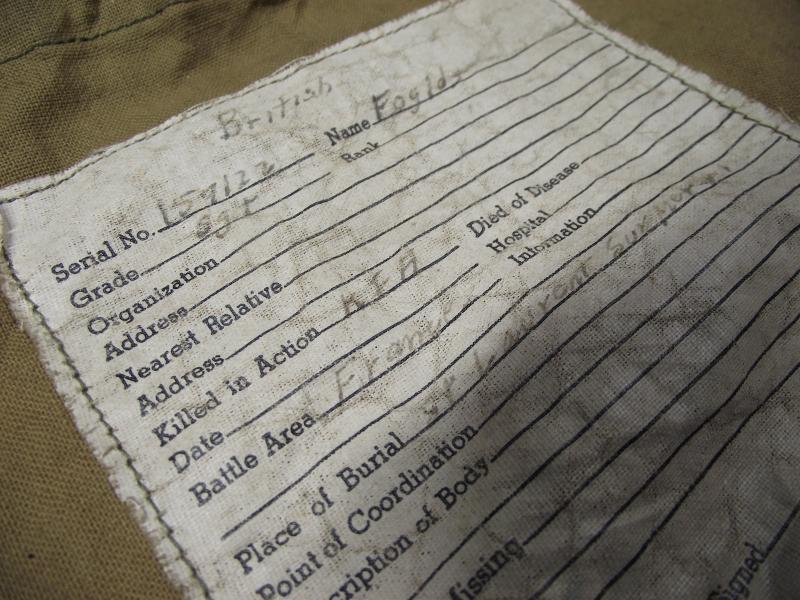 British
Serial No. 159122 Name
Grade Sgt Rank
Organization
Address
Nearest Relative
Address Died of Disease
Killed in Action KIA Hospital
Date Information
Battle Area France
Place of Burial St Laurent sur mer
Point of Coordination
cription of Body
issing
Signed